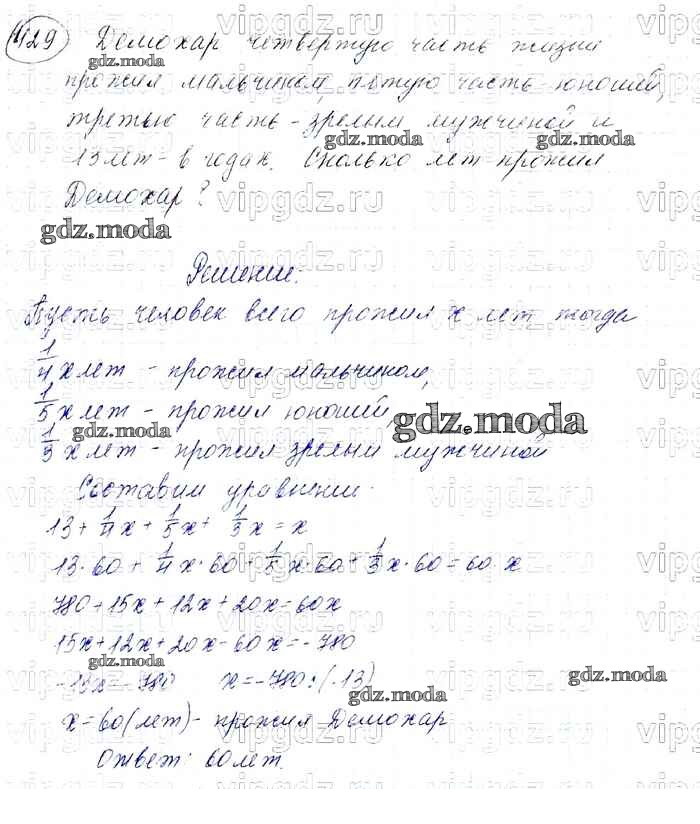 429 Демохар четвертую часть жизни
прожил мальчиком, пятую часть - юношей,
третью часть - зрелым мужчиной и
13 лет - в годах. Сколько лет прожил
Демохар?
Решение:
Пусть человек всего прожил x лет тогда
1/4 x лет - прожил мальчиком,
1/5 x лет - прожил юношей,
1/3 x лет - прожил зрелым мужчиной
Составим уравнение.
13 + 1/4 x + 1/5 x + 1/3 x = x
13·60 + 1/4 x·60 + 1/5 x·60 + 1/3 x·60 = 60·x
780 + 15x + 12x + 20x = 60x
15x + 12x + 20x - 60x = -780
-13x = -780 x = -780:(-13)
x = 60 (лет) - прожил Демохар
Ответ: 60 лет.
vipgdz.ru
gdz.moda